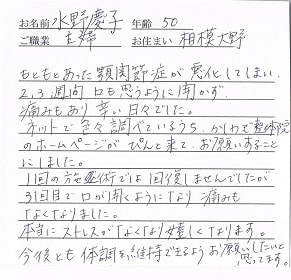 お名前 水野慶子 年齢 50
ご職業 主婦 お住まい 相模大野
もともとあった顎関節症が悪化してしまい、
2,3週間 口も思うように開かず、
痛みもあり辛い日々でした。
ネットで色々調べているうち、かしわで整体院
のホームページがぴんと来て、お願いすること
にしました。
1回の施術では回復しませんでしたが
3回目で口が開くようになり 痛みも
なくなりました。
本当にストレスがなくなり嬉しくなります。
今後とも体調を維持できるようお願いしたいと
思ってます。